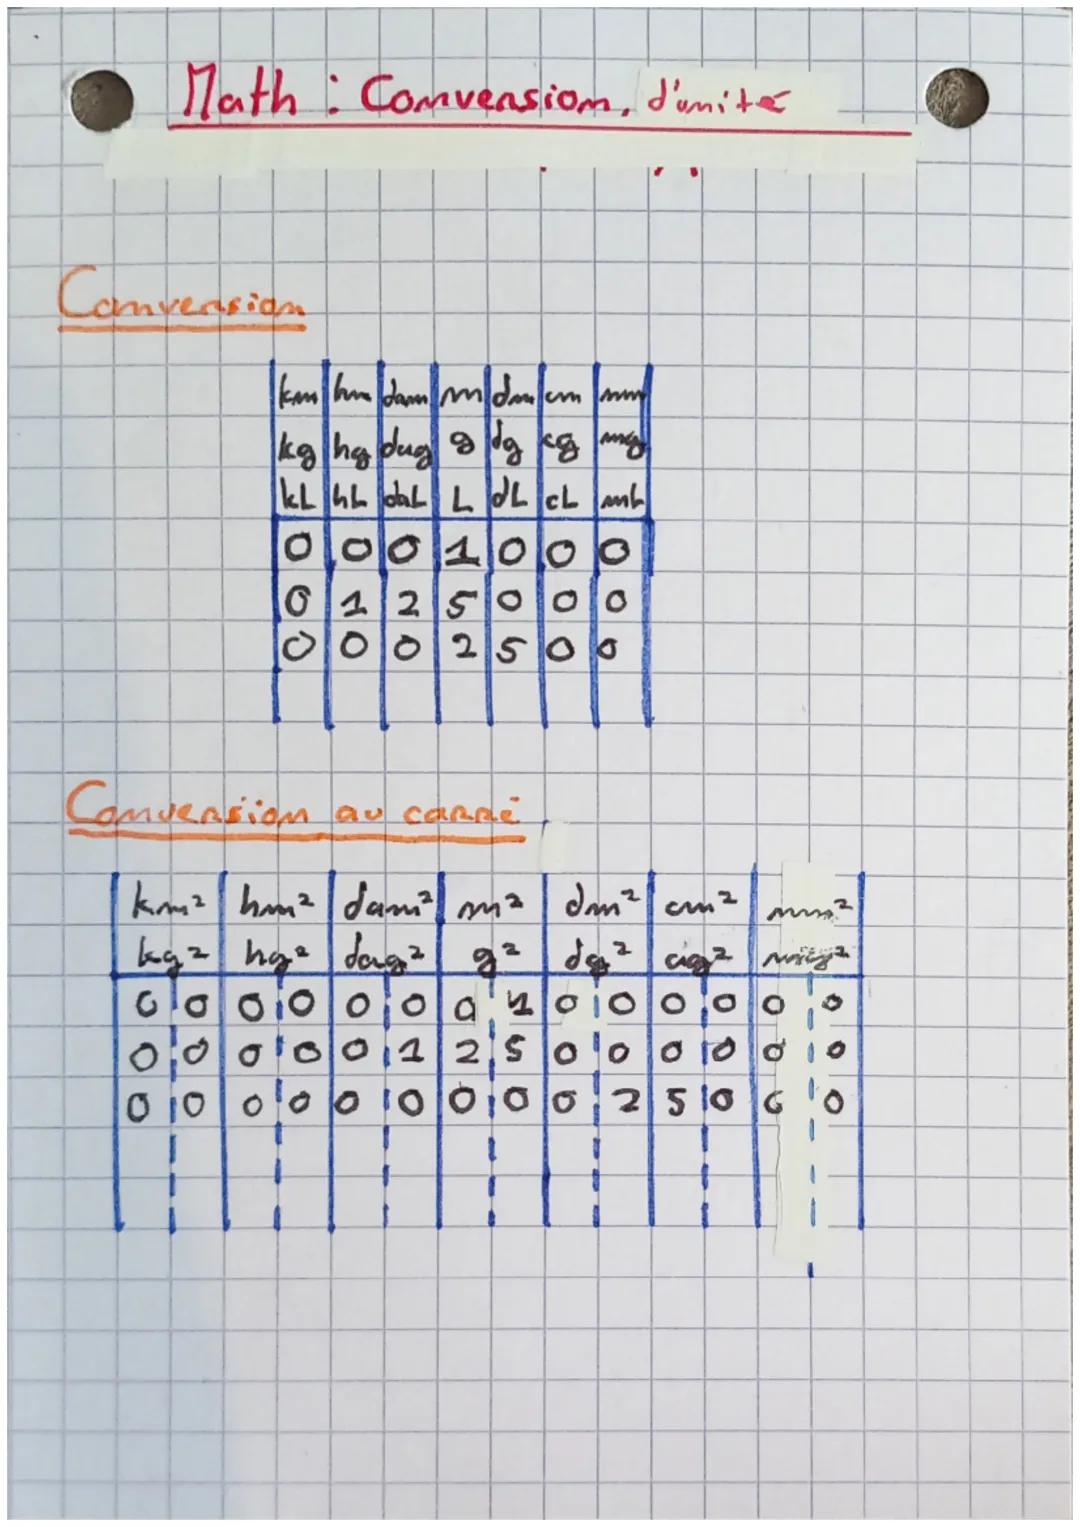 Math : Conversion, d'unité
Conversion
km hm dam m dm cm mm
kg hg dag g dg cg mg
kL hL daL L dL cL mL
0 0 0 1 0 0 0
0 1 2 5 0 0 0
0 0 0 2 5 0 0
Conversion au carré
km² hm² dam² m² dm² cm² mm²
kg² hg² dag² g² dg² cg²
0 0 0 0 0 0 0 1 0 0 0 0 0 0
0 0 0 0 0 1 2 5 0 0 0 0 0 0
0 0 0 0 0 0 0 0 0 2 5 0 0 0